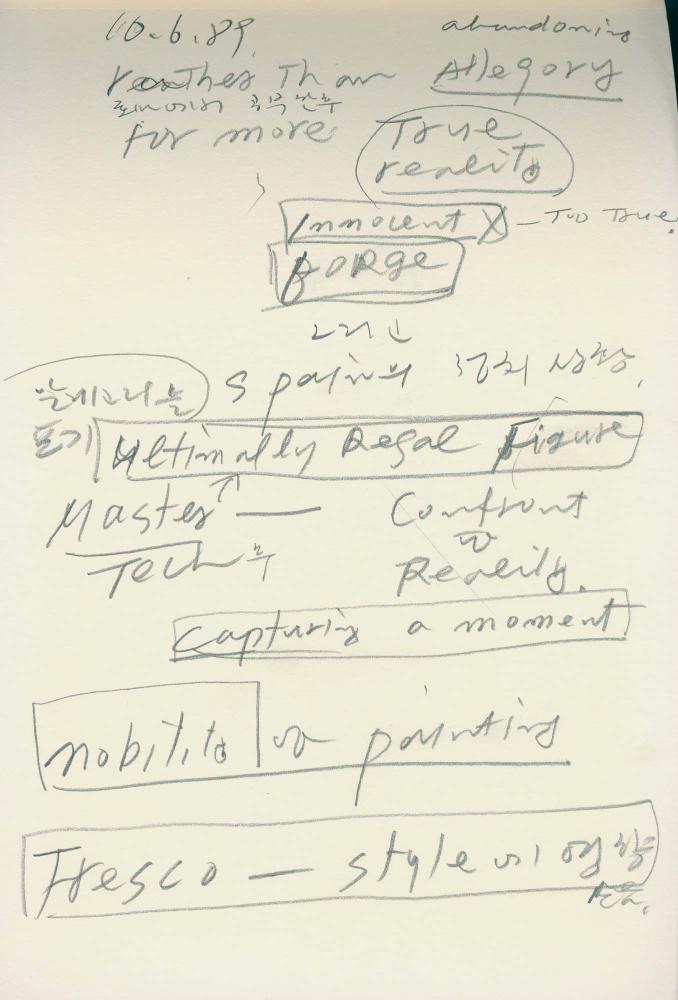 10.6.89. abandoning
rather Than Allegory
로마에서 공부한 후
for more True
reality
Innocent X — Too True.
BORge
그리고
Spain의 정치 상황,
알레고리를
포기 Ultimally Regal Figure
Master — Confront
Tech 후 Reality.
capturing a moment
nobility of painting
Fresco — style에 영향